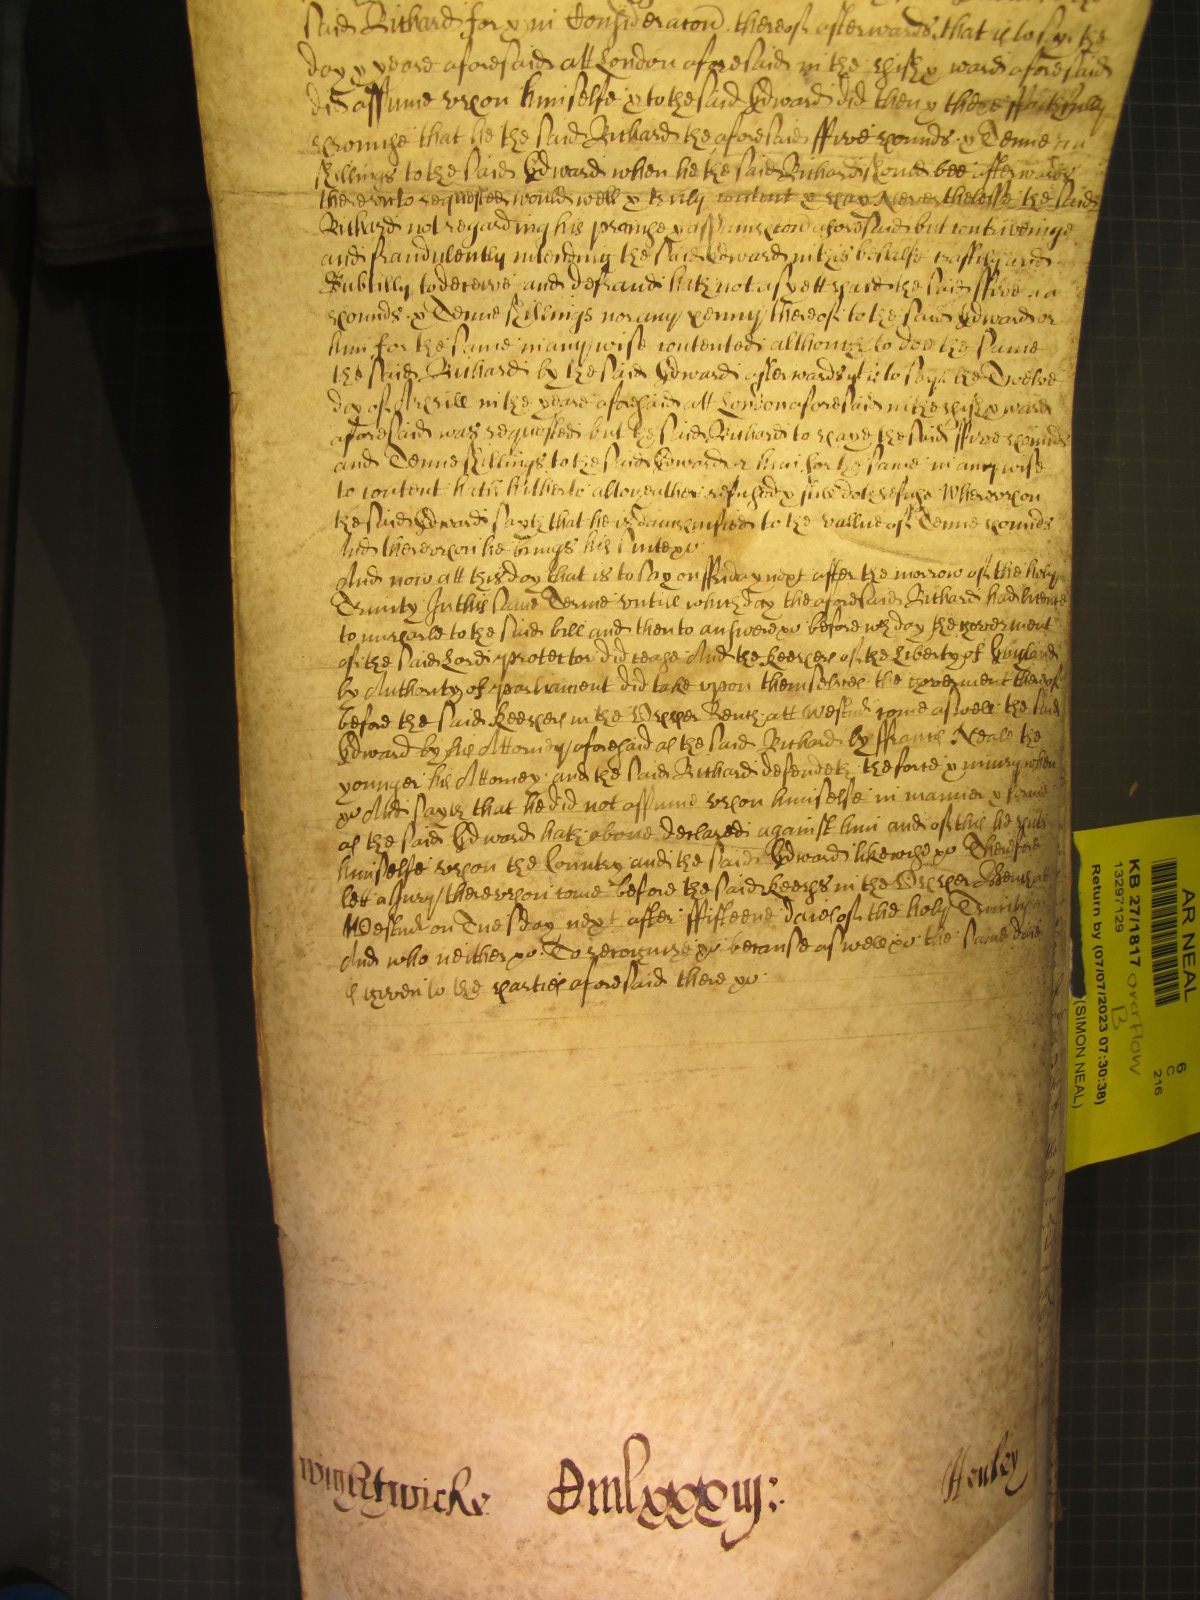 said Richard for & in Consideracon thereof afterwards that is to say the
day & yeare aforesaid att London aforesaid in the pish & ward aforesaid
did assume upon himselfe & to the said Edward did then & there faithfully
promise that he the said Richard the aforesaid ffive pounds & Tenne
shillings to the said Edward when he the said Richard should bee afterwards
thereunto requested would well & truly content & pay Neverthelesse the said
Richard not regarding his promise & assumpcon aforesaid but contriveinge
and fraudulently intending the said Edward in this behalfe craftily and
Subtilly to deceive and defraud hath not as yett paid the said ffive
pounds & Tenne shillings nor any penny thereof to the said Edward or
him for the same in any wise contented although to doe the same
the said Richard by the said Edward afterwards yt is to say the Twelve
day of Aprill in the yeare aforesaid att London aforesaid in the pish & ward
aforesaid was requested but the said Richard to paye the said ffive pounds
and Tenne shillings to the said Edward or him for the same in any wise
to content hath hitherto altogeather refused & still doth refuse Whereupon
the said Edward sayth that he is dampnified to the vallue of Tenne pounds
And thereupon he brings his suite &c
And now att this day that is to say on ffriday next after the morrow of the holy
Trinity In this same Terme until which day the aforesaid Richard had licence
to imparle to the said bill and then to answere &c before wch day the goverment
of the said Lord protector did cease And the keepers of the Liberty of England
by Authority of parliament did take upon themselves the goverment thereof
before the said keepers in the Upper Bench att Westm come aswell the said
Edward by his Attorney aforesaid as the said Richard by ffrancis Neale the
younger his Attorney and the said Richard defendeth the force & iniury when
&c And sayth that he did not assume upon himselfe in manner & forme
as the said Edward hath above declared against him and of this he putts
himselfe upon the Country and the said Edward likewise &c Therefore
lett a Jury thereupon come before the said keeps in the Upper Bench att
Westm on Tuesday next after ffifteene daies of the holy Trinity
And who neither &c To recognize &c because aswell &c the same daie
is given to the parties aforesaid there &c
Wightwicke Dmlxxxiij: Henley
AR NEAL
6
C
216
KB 27/1817 overflow
B
13297129
Return by (07/07/2023 07:30:38)
(SIMON NEAL)